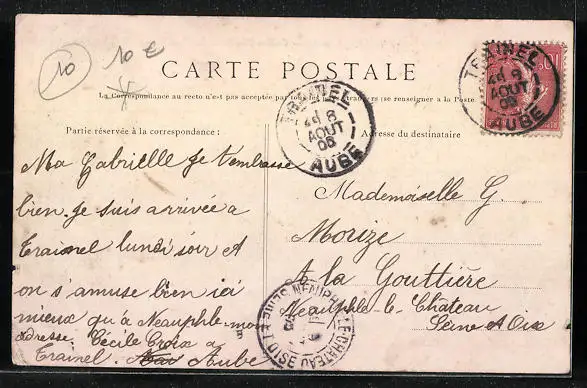 10
10 €
CARTE POSTALE
La Correspondance au recto n'est pas acceptée par tous les Étrangers (se renseigner à la Poste
Partie réservée à la correspondance :
Ma Gabrielle Je t'embrasse
bien. Je suis arrivée a
Trainel lundi soir et
on s'amuse bien ici
mieux qu'a Neauphle. mon
adresse. Cécile Croix a
Trainel. Aube
Adresse du destinataire
Mademoiselle G.
Morize
A la Gouttière
Neauphle-le-Château
Seine et Oise
TRAINEL
8
AOUT
06
AUBE
TRAINEL
8
AOUT
06
AUBE
10
NEAUPHLE-LE-CHATEAU
SEINE-ET-OISE